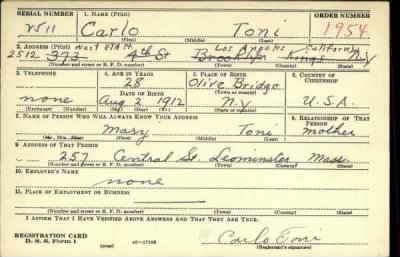 SERIAL NUMBER 1. NAME (Print) ORDER NUMBER
Carlo Toni 1954
(First) (Middle) (Last)
2. ADDRESS (Print) West 8th St Los Angeles California
2512 373 4th St Brooklyn Kings N.Y
(Number and street or R. F. D. number) (Town) (County) (State)
3. TELEPHONE 4. AGE IN YEARS 5. PLACE OF BIRTH 6. COUNTRY OF CITIZENSHIP
28 Olive Bridge
DATE OF BIRTH (Town or county)
none Aug 2 1912 N.Y U.S.A.
(Exchange) (Number) (Mo.) (Day) (Yr.) (State or country)
7. NAME OF PERSON WHO WILL ALWAYS KNOW YOUR ADDRESS 8. RELATIONSHIP OF THAT PERSON
Mary Toni mother
(Mr., Mrs., Miss) (First) (Middle) (Last)
9. ADDRESS OF THAT PERSON
257 Central St. Leominster Mass
(Number and street or R. F. D. number) (Town) (County) (State)
10. EMPLOYER'S NAME
none
11. PLACE OF EMPLOYMENT OR BUSINESS
(Number and street or R. F. D. number) (Town) (County) (State)
I AFFIRM THAT I HAVE VERIFIED ABOVE ANSWERS AND THAT THEY ARE TRUE.
REGISTRATION CARD
D. S. S. Form 1 (over) Carlo Toni
(Registrant's signature)